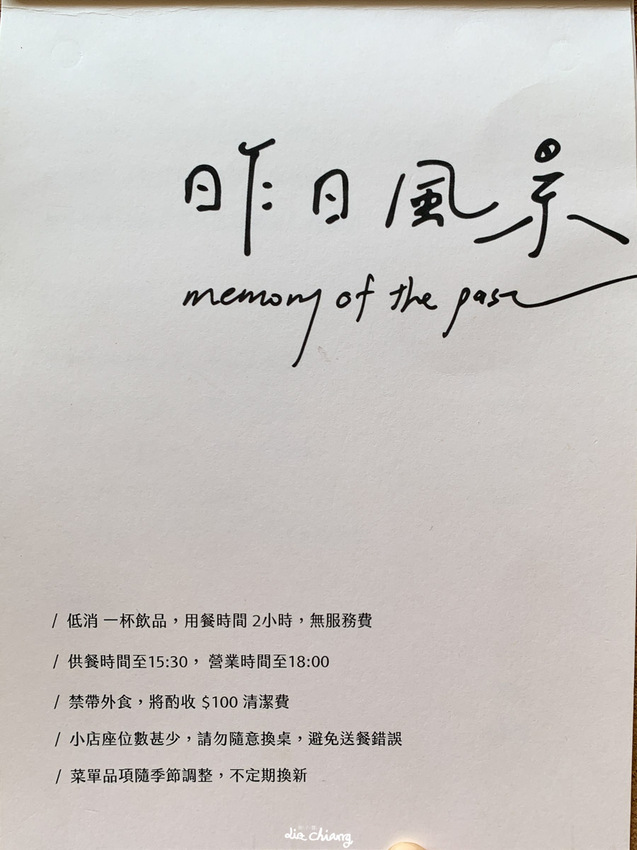 昨日風景
memory of the past
/ 低消 一杯飲品，用餐時間 2小時，無服務費
/ 供餐時間至15:30， 營業時間至18:00
/ 禁帶外食，將酌收 $100 清潔費
/ 小店座位數甚少，請勿隨意換桌，避免送餐錯誤
/ 菜單品項隨季節調整，不定期換新
dia chiang